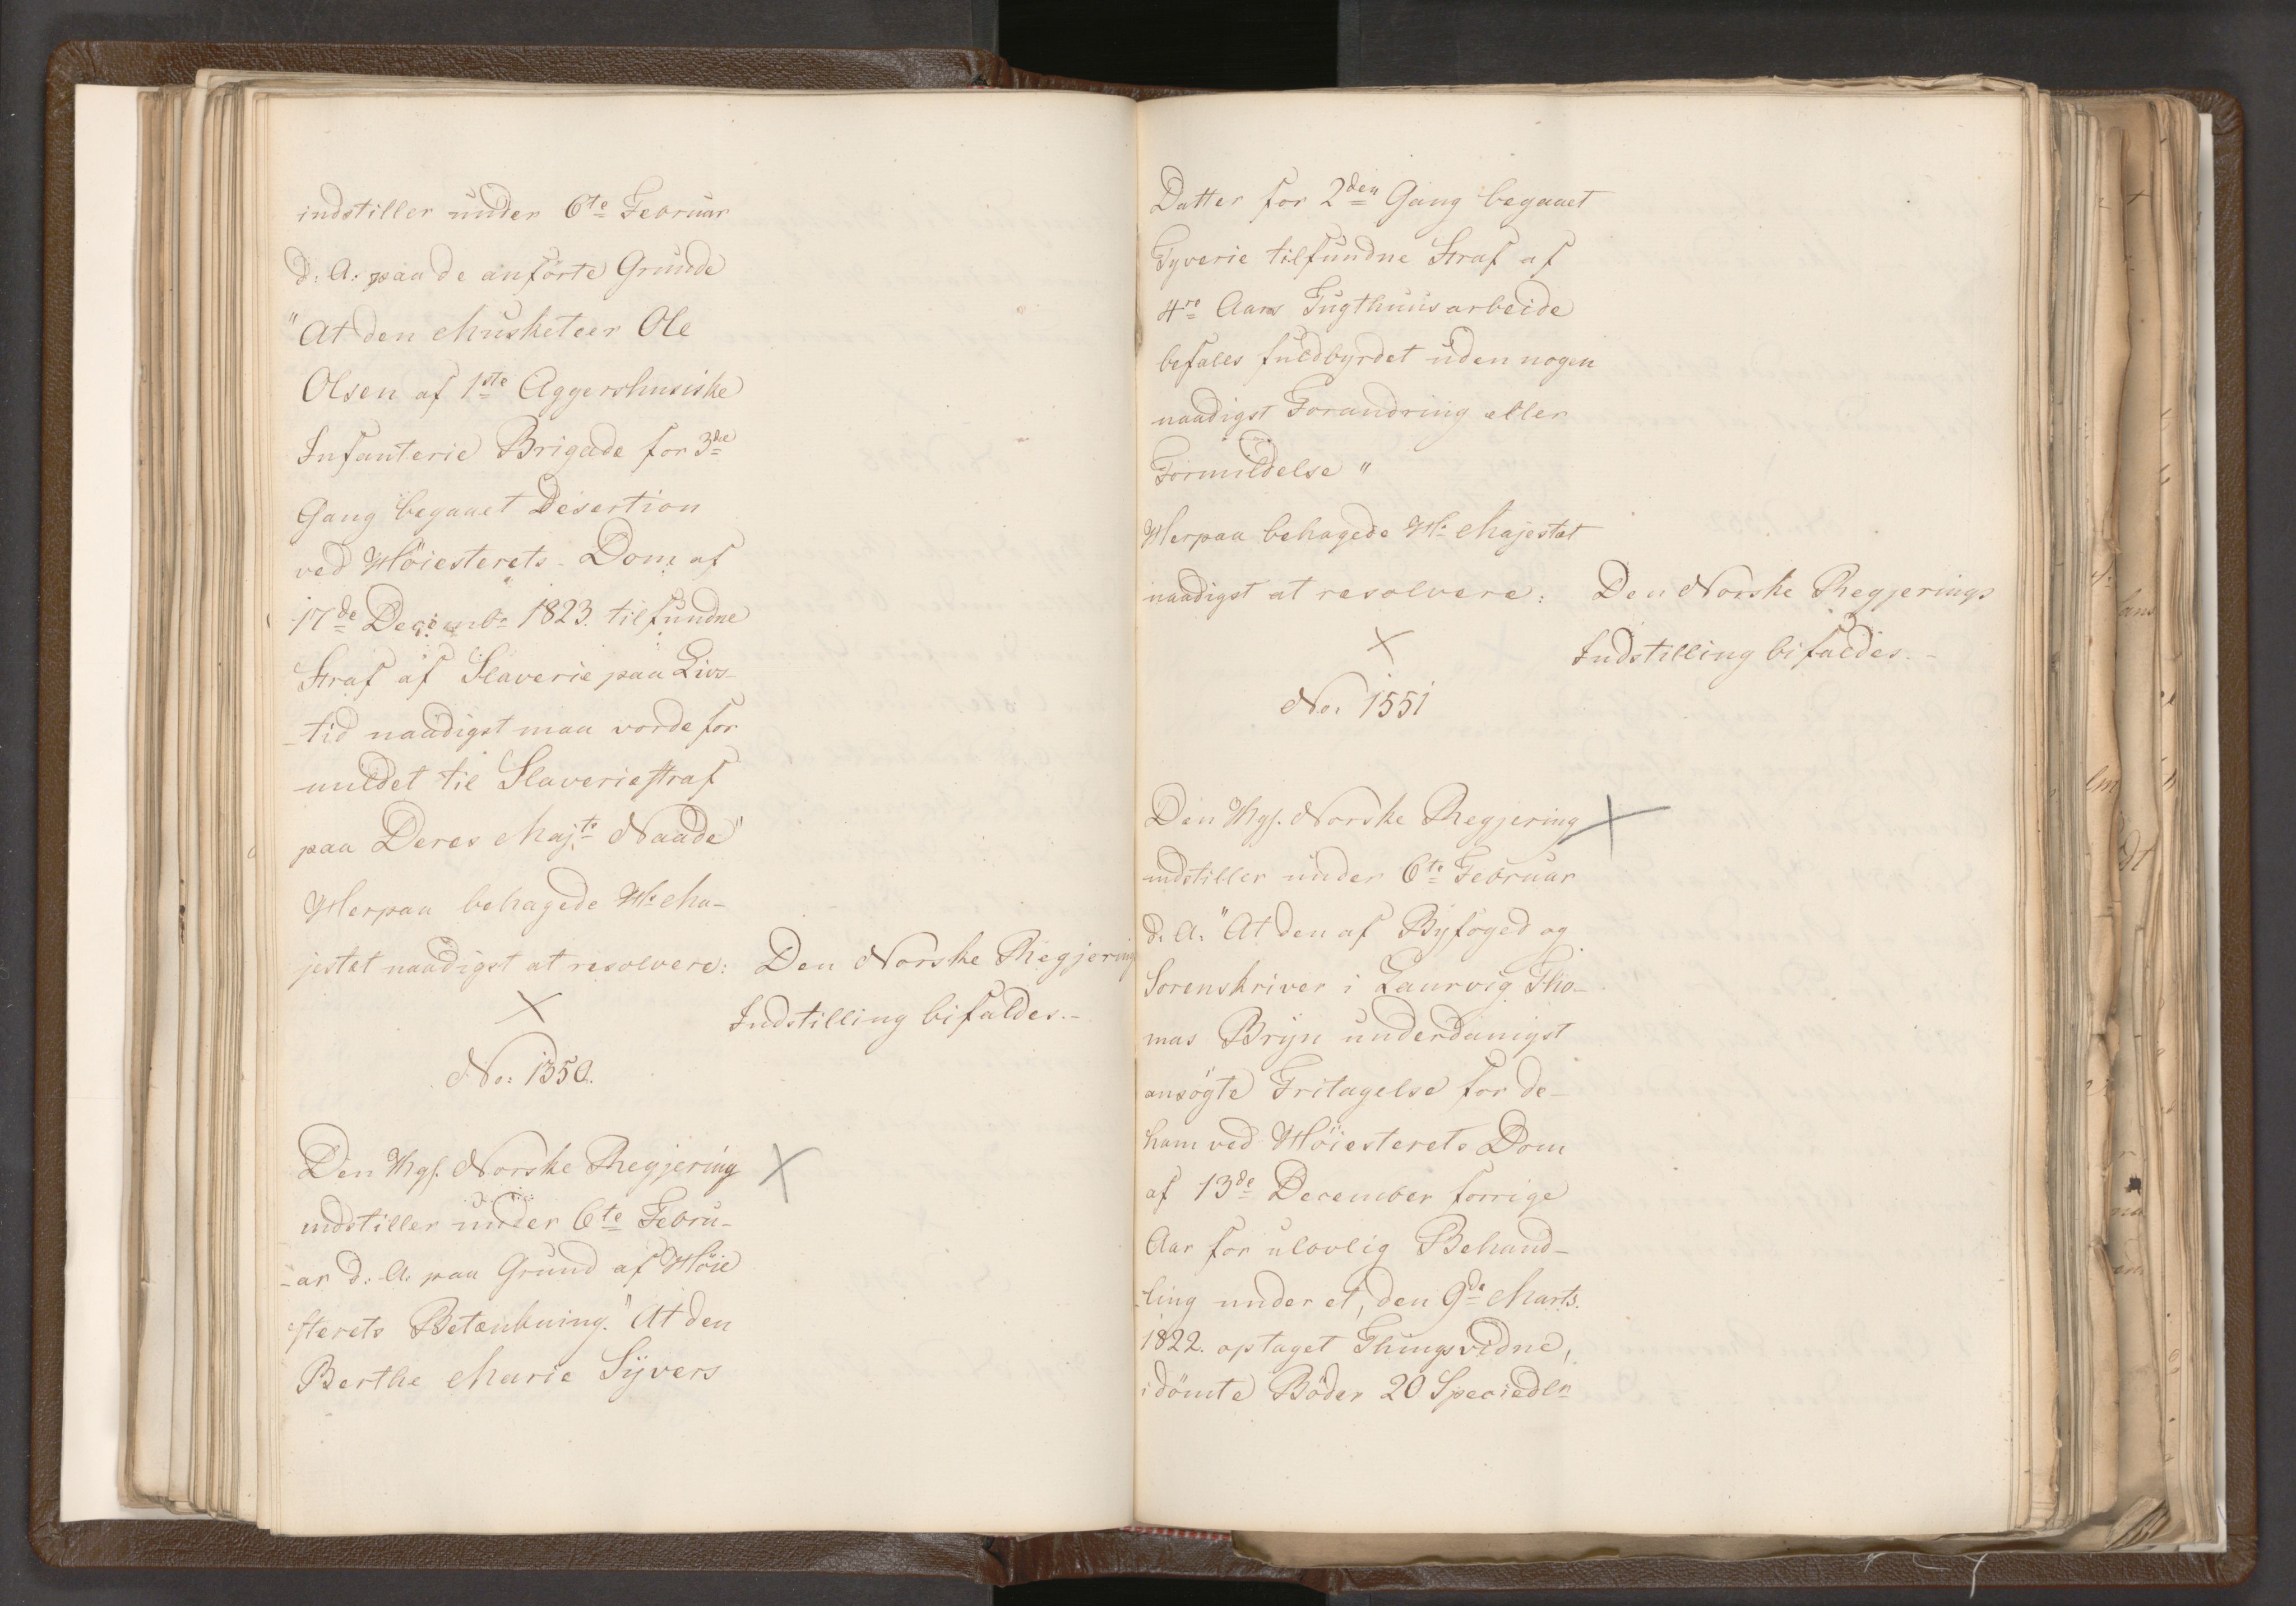 indstiller under 6te Februar
d: A: paa de anförte Grunde
"At den Musketeer Ole
Olsen af 1ste Aggershusiske
Infanterie Brigade for 3die
Gang begaaet Desertion
ved Höiesterets-Dom af
17de Decembr 1823. tilfundne
Straf af Slaverie paa Livs-
-tid naadigst maa vorde for
mildet til Slaveriestraf
paa Deres Majts Naade"
Herpaa behagede Hs Ma-
jestæt naadigst at resolvere:
Den Norske Regjering
Indstilling bifaldes.-
No: 1350.
Den Kgl. Norske Regjering
indstiller under 6te Febru-
-ar d: A: paa Grund af Höie
sterets Betænkning. "At den
Berthe Marie Sÿvers
Datter for 2den Gang begaaet
Tyverie tilfundne Straf af
4re Aars Tugthuusarbeide
befales fuldbyrdet uden nogen
naadigst Forandring eller
Formildelse"
Herpaa behagede Hs Majestæt
naadigst at resolvere:
Den Norske Regjerings
Indstilling bifaldes.-
No: 1551
Den Kgl. Norske Regjering
indstiller under 6te Februar
d: A: "At den af Byfoged og
Sorenskriver i Laurvig Tho-
mas Brÿn underdanigst
ansögte Fritagelse for de-
ham ved Höiesterets Dom
af 13de December forrige
Aar for ulovlig Behand-
-ling under et, den 9de Marts.
1822. optaget Thingsvidne,
idömte Böder 20 Speciedlr